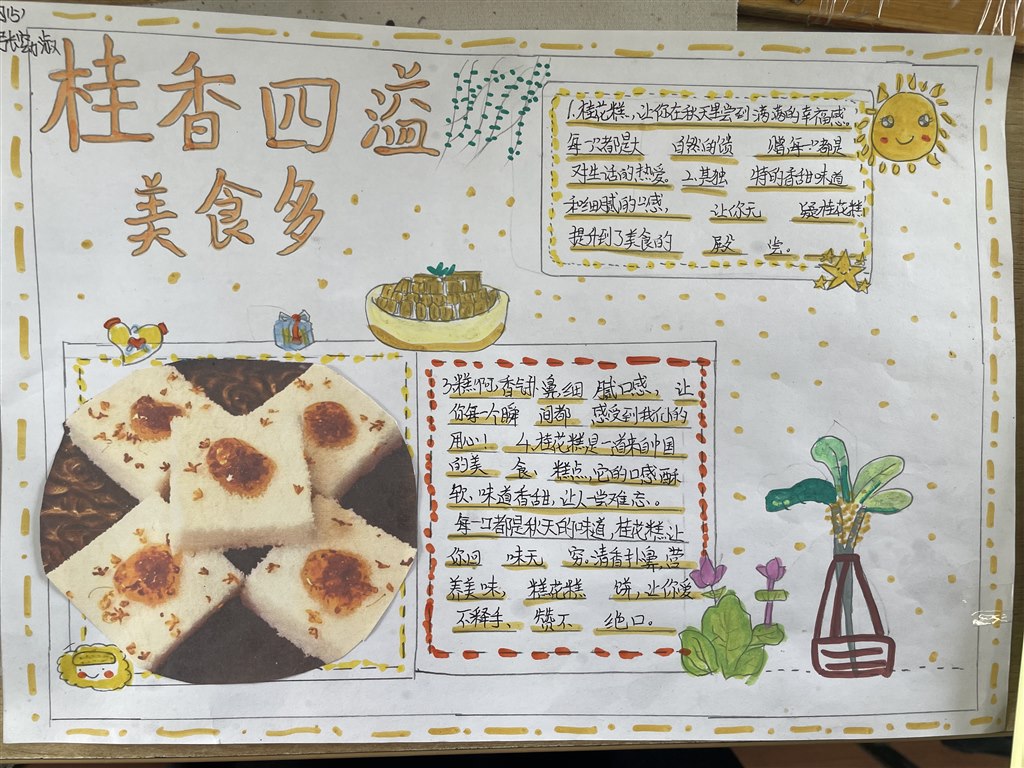 桂香四溢
美食多
1.桂花糕,让你在秋天里尝到满满的幸福感。
每一次都是大自然的馈赠,每一口都是
对生活的热爱。2.其独特的香甜味道
和细腻的口感,让你无疑桂花糕
提升到了美食的殿尝。
3.糕 香气扑鼻,细腻口感,让
你每一个瞬间都感受到我们的
用心! 4.桂花糕是一道来自中国
的美食、糕点,它的口感酥
软、味道香甜,让人一尝难忘。
每一口都是秋天的味道,桂花糕,让
你回味无穷。清香扑鼻,营
养美味,糕花糕饼,让你爱
不释手、赞不绝口。